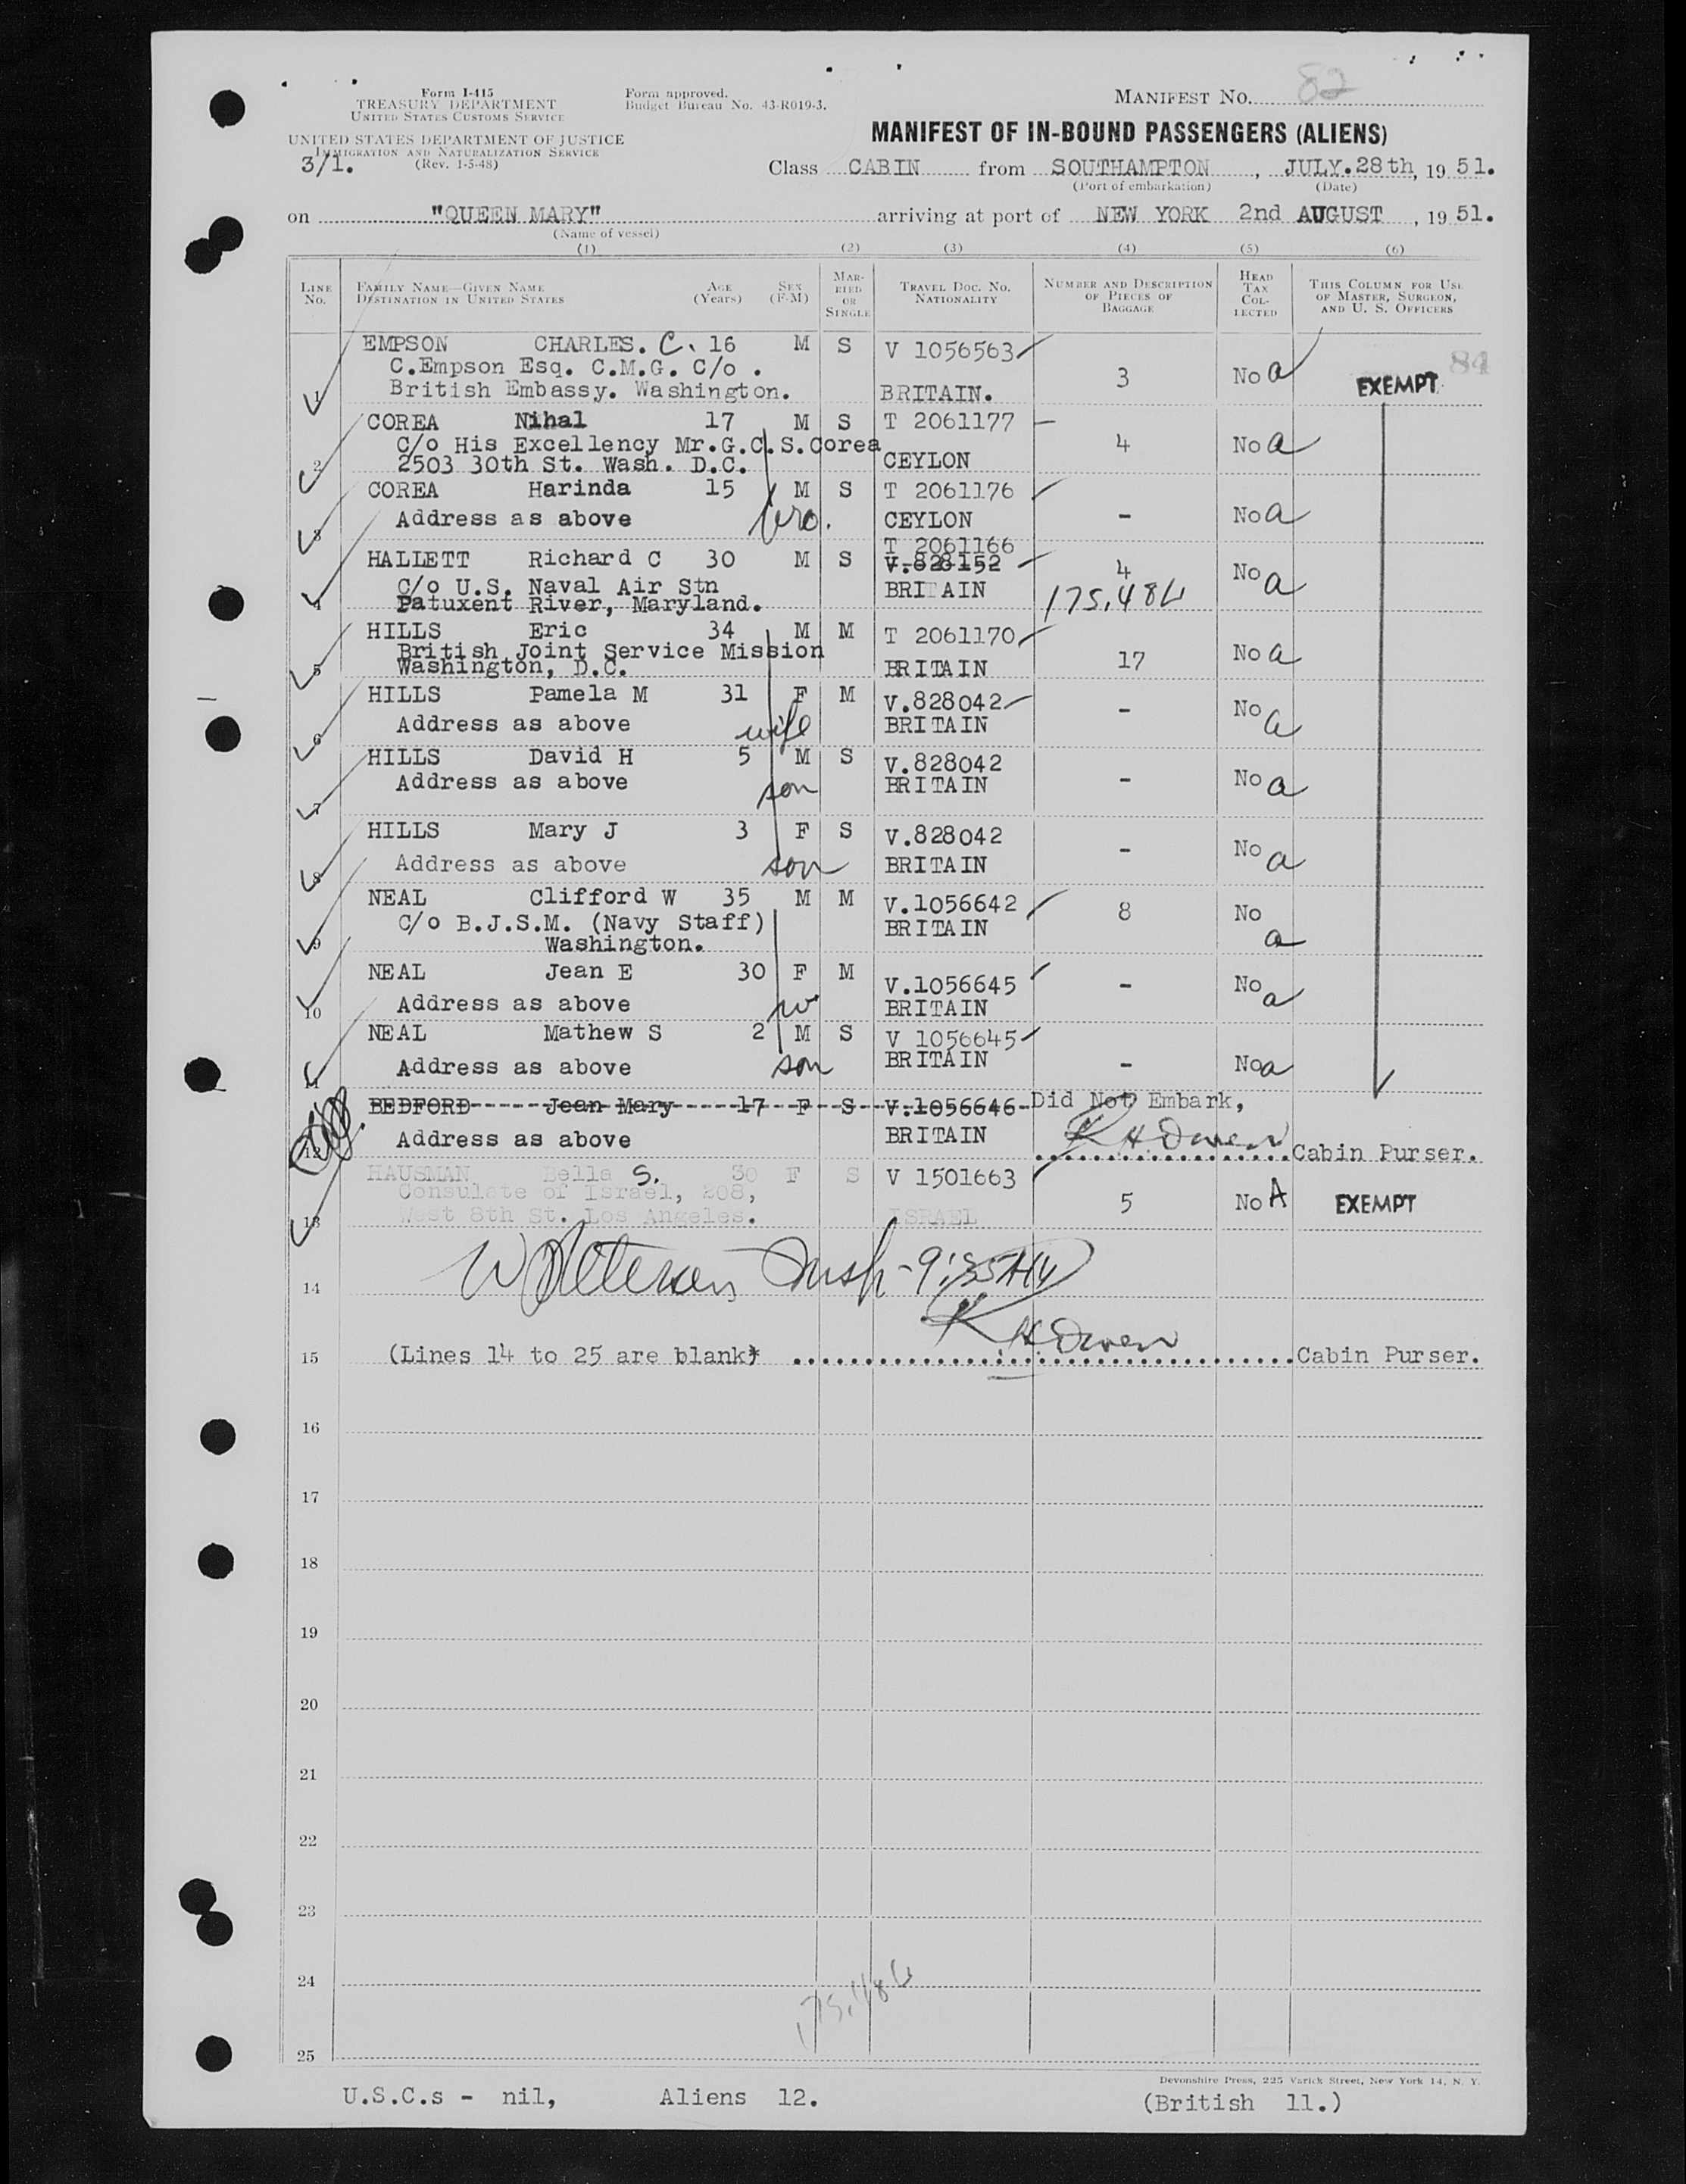 Form I-415
TREASURY DEPARTMENT
UNITED STATES CUSTOMS SERVICE
UNITED STATES DEPARTMENT OF JUSTICE
IMMIGRATION AND NATURALIZATION SERVICE
(Rev. 1-5-48)
3/1.
Form approved.
Budget Bureau No. 43-R019-3.
MANIFEST NO. 82
MANIFEST OF IN-BOUND PASSENGERS (ALIENS)
Class CABIN from SOUTHAMPTON, JULY.28th, 19 51.
(Port of embarkation) (Date)
on "QUEEN MARY" arriving at port of NEW YORK 2nd AUGUST, 19 51.
(Name of vessel)
(1) (2) (3) (4) (5) (6)
LINE No. FAMILY NAME—GIVEN NAME DESTINATION IN UNITED STATES AGE (Years) SEX (F-M) MARRIED OR SINGLE TRAVEL DOC. NO. NATIONALITY NUMBER AND DESCRIPTION OF PIECES OF BAGGAGE HEAD TAX COLLECTED THIS COLUMN FOR USE OF MASTER, SURGEON, AND U. S. OFFICERS
EMPSON CHARLES. C. 16 M S V 1056563
84
C.Empson Esq. C.M.G. C/o . 3 No a EXEMPT
1 British Embassy. Washington. BRITAIN.
COREA Nihal 17 M S T 2061177
C/o His Excellency Mr.G.C.S.Corea 4 No a
2 2503 30th St. Wash. D.C. CEYLON
COREA Harinda 15 M S T 2061176
3 Address as above bro. CEYLON - No a
T 2061166
HALLETT Richard C 30 M S V.828152 4 No a
C/o U.S. Naval Air Stn BRITAIN
4 Patuxent River, Maryland. 175,486
HILLS Eric 34 M M T 2061170
British Joint Service Mission 17 No a
5 Washington, D.C. BRITAIN
HILLS Pamela M 31 F M V.828042
6 Address as above wife BRITAIN - No a
HILLS David H 5 M S V.828042
7 Address as above son BRITAIN - No a
HILLS Mary J 3 F S V.828042
8 Address as above son BRITAIN - No a
NEAL Clifford W 35 M M V.1056642 8 No a
C/o B.J.S.M. (Navy Staff) BRITAIN
9 Washington.
NEAL Jean E 30 F M V.1056645 - No a
10 Address as above w BRITAIN
NEAL Mathew S 2 M S V 1056645
11 Address as above son BRITAIN - No a
BEDFORD Jean Mary 17 F S V.1056646 Did Not Embark,
12 Address as above BRITAIN K H Owen Cabin Purser.
HAUSMAN Bella S. 30 F S V 1501663
Consulate of Israel, 208, 5 No A EXEMPT
13 West 8th St. Los Angeles. ISRAEL
14
K H Owen
15 (Lines 14 to 25 are blank) Cabin Purser.
16
17
18
19
20
21
22
23
24
175,486
25
Devonshire Press, 225 Varick Street, New York 14, N. Y.
U.S.C.s - nil, Aliens 12. (British 11.)